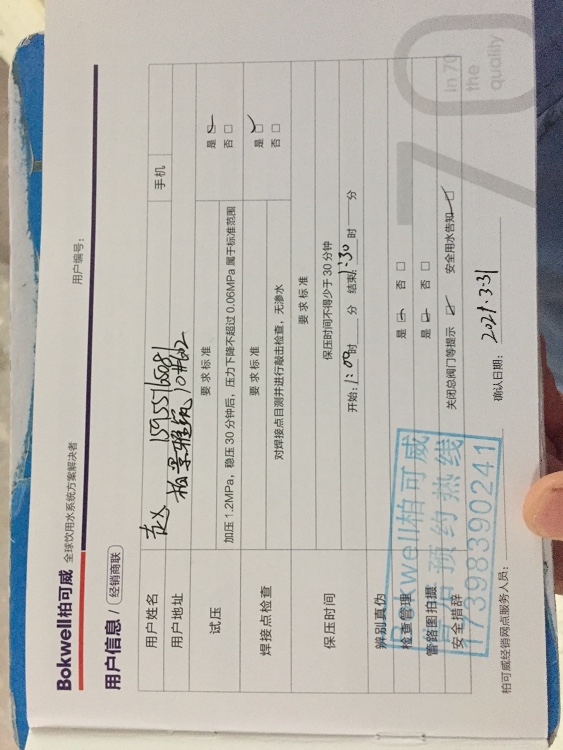 Bokwell柏可威 全球饮用水系统方案解决者
用户编号：
用户信息 / 经销商联
用户姓名 赵 手机
用户地址 柏景雅筑10#602
试压 要求标准 是 □
加压1.2MPa，稳压30分钟后，压力下降不超过0.06MPa属于标准范围 否 □
焊接点检查 要求标准 是 □
对焊接点目测并进行敲击检查，无渗水 否 □
保压时间 要求标准
保压时间不得少于30分钟
开始：1:00时 分 结束：1:30时 分
辨别真伪
检查管理 是 □ 否 □
管路图拍摄 是 □ 否 □
安全措辞 关闭总阀门等提示 □ 安全用水告知 □
柏可威经销网点服务人员： 确认日期： 2021.3.31
kwell柏可威
预约热线
17398390241
70
In 70
the
quality